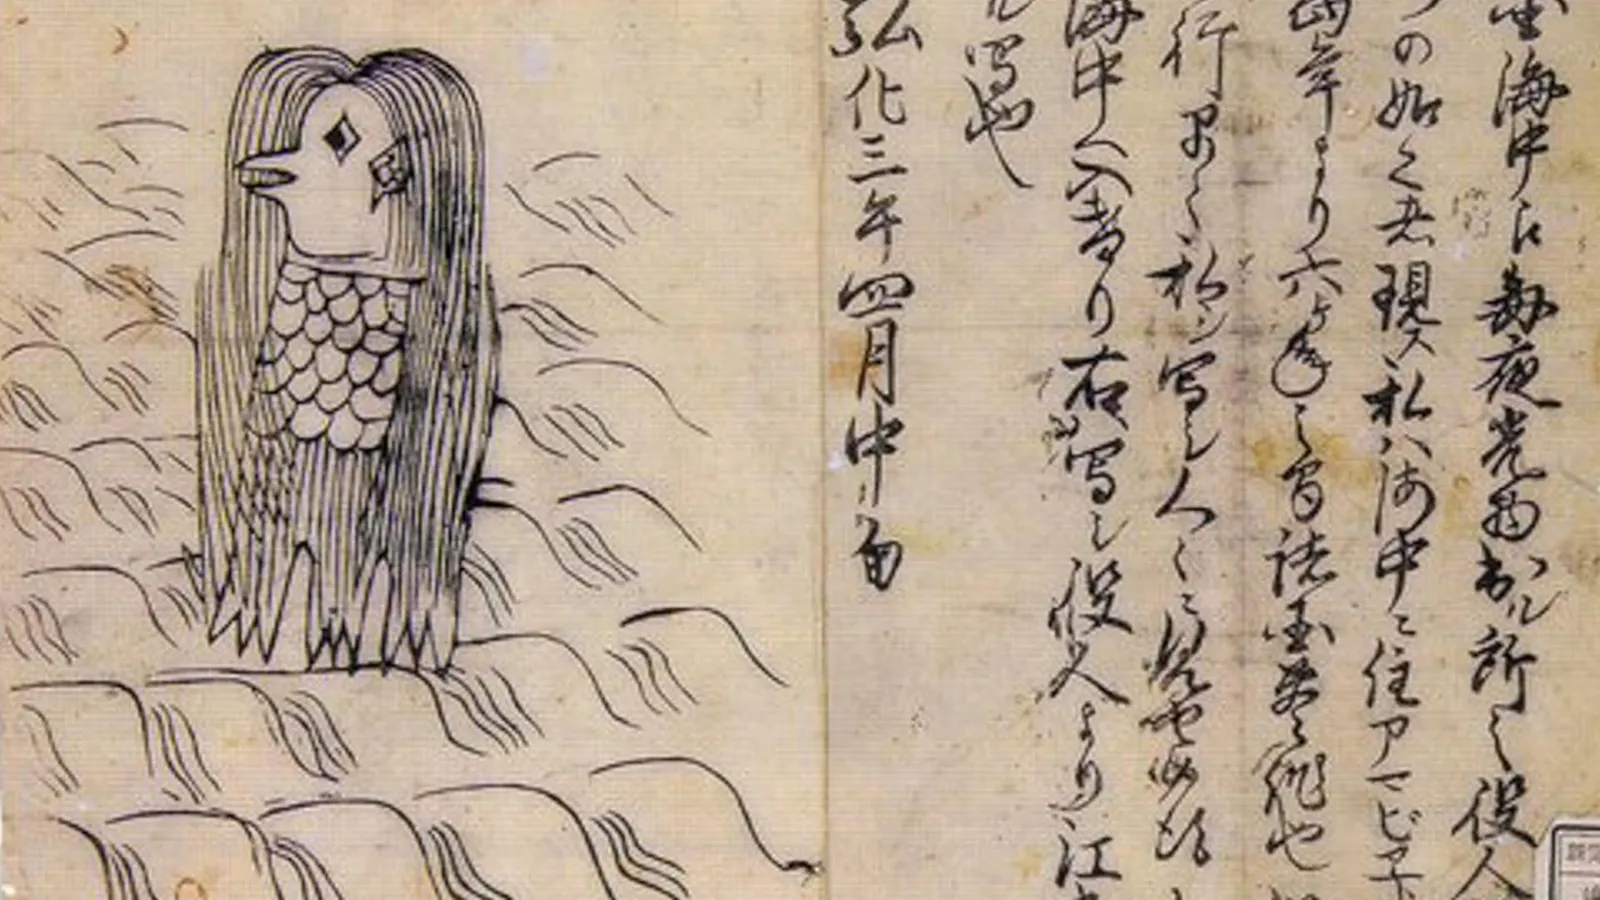 国海中江毎夜光物出ル所之役人
つの如く者現ス私ハ海中ニ住アマビヱト
當年より六ヶ年之間諸国豊作也
行早々私ヲ写シ人々ニ見セ候得
海中へ入けり右写シ役人より江
ル写也
弘化三年四月中旬